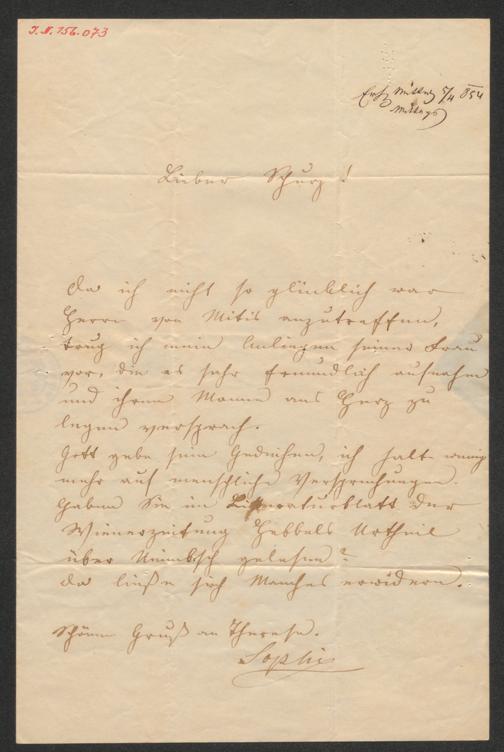 I.N. 156.073
Erh. Mittw 5/4 854
Mittags
Lieber Schurz!
Da ich nicht so glücklich war
Herrn von Mitis anzutreffen,
trug ich mein Anliegen seiner Frau
vor, die es sehr freundlich aufnahm
und ihrem Manne ans Herz zu
legen versprach.
Gott gebe sein Gedeihen, ich halte wenig
mehr auf menschliche Versprechungen.
Haben Sie im Literaturblatt der
Wienerzeitung Hebbels Urtheil
über Niembsch gelesen?
da ließe sich Manches erwidern.
Schönen Gruß an Therese.
Sophie